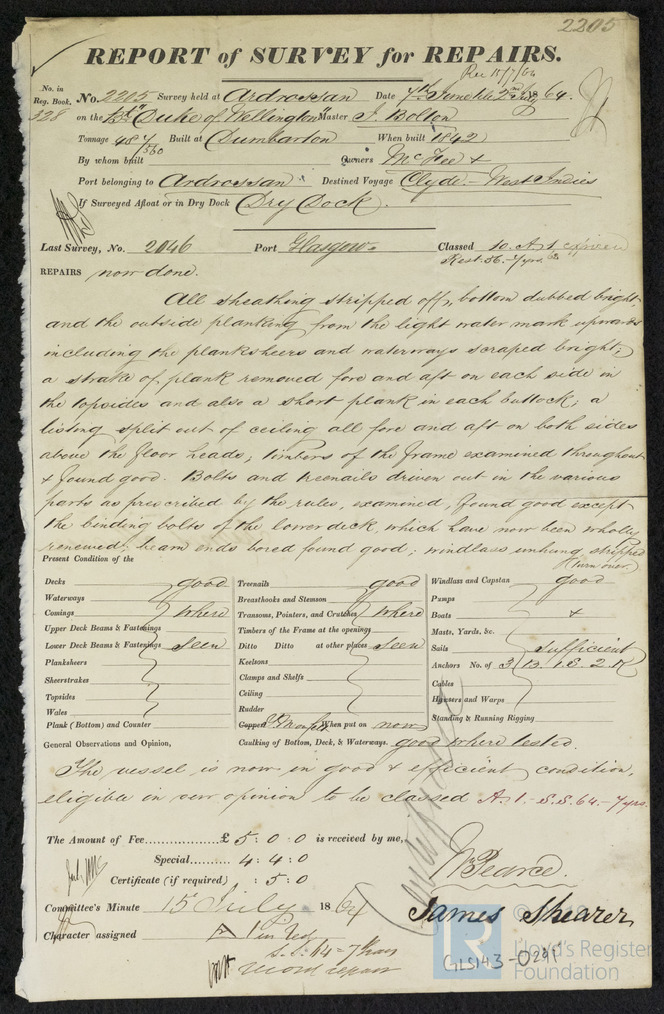 2205
REPORT of SURVEY for REPAIRS.
Rec 15/7/64
No. in Reg. Book. 328
No. 2205 Survey held at Ardrossan Date 7th June till 2nd July 1864.
on the Bk "Duke of Wellington" Master J. Bolton
Tonnage 487/560 Built at Dumbarton When built 1842
By whom built Owners McFee &
Port belonging to Ardrossan Destined Voyage Clyde - West Indies
If Surveyed Afloat or in Dry Dock Dry Dock.
Last Survey, No. 2046 Port Glasgow Classed 10. A 1 expired
Rest. 56 - 7 yrs
REPAIRS now done.
All sheaking stripped off, bottom dubbed bright
and the outside planking from the light water mark upwards
including the planksheers and waterways scraped bright;
a strake of plank removed fore and aft on each side in
the topsides and also a short plank in each buttock; a
listing split out of ceiling all fore and aft on both sides
above the floor heads; timbers of the frame examined throughout
& found good. Bolts and treenails driven out in the various
parts as prescribed by the rules, examined, found good except
the binding bolts of the lower deck, which have now been wholly
renewed; beam ends bored found good; windlass unhung stripped
(turn over
Present Condition of the
Decks good
Waterways
Comings where
Upper Deck Beams & Fastenings
Lower Deck Beams & Fastenings seen
Planksheers
Sheerstrakes
Topsides
Wales
Plank (Bottom) and Counter
Treenails good
Breasthooks and Stemson
Transoms, Pointers, and Crutches where
Timbers of the Frame at the openings
Ditto Ditto at other places seen
Keelsons
Clamps and Shelfs
Ceiling
Rudder
Coppered When put on now
Caulking of Bottom, Deck, & Waterways. good where tested.
Windlass and Capstan good
Pumps
Boats &
Masts, Yards, &c.
Sails sufficient
Anchors No. of 3 B. 1 S. 2 K
Cables
Hawsers and Warps
Standing & Running Rigging
General Observations and Opinion,
The vessel is now in good & efficient condition,
eligible in our opinion to be classed A.1.- S.S. 64.- 7 yrs.
The Amount of Fee £ 5 : 0 : 0 is received by me,
Special 4 : 4 : 0
Certificate (if required) : 5 : 0
Pearce.
Committee's Minute 15 July 1864
James Shearer
Character assigned A 1 in Red
S.S. 64 - 7 Years
record repair
LR
Lloyd's Register
Foundation
GLS143-0291